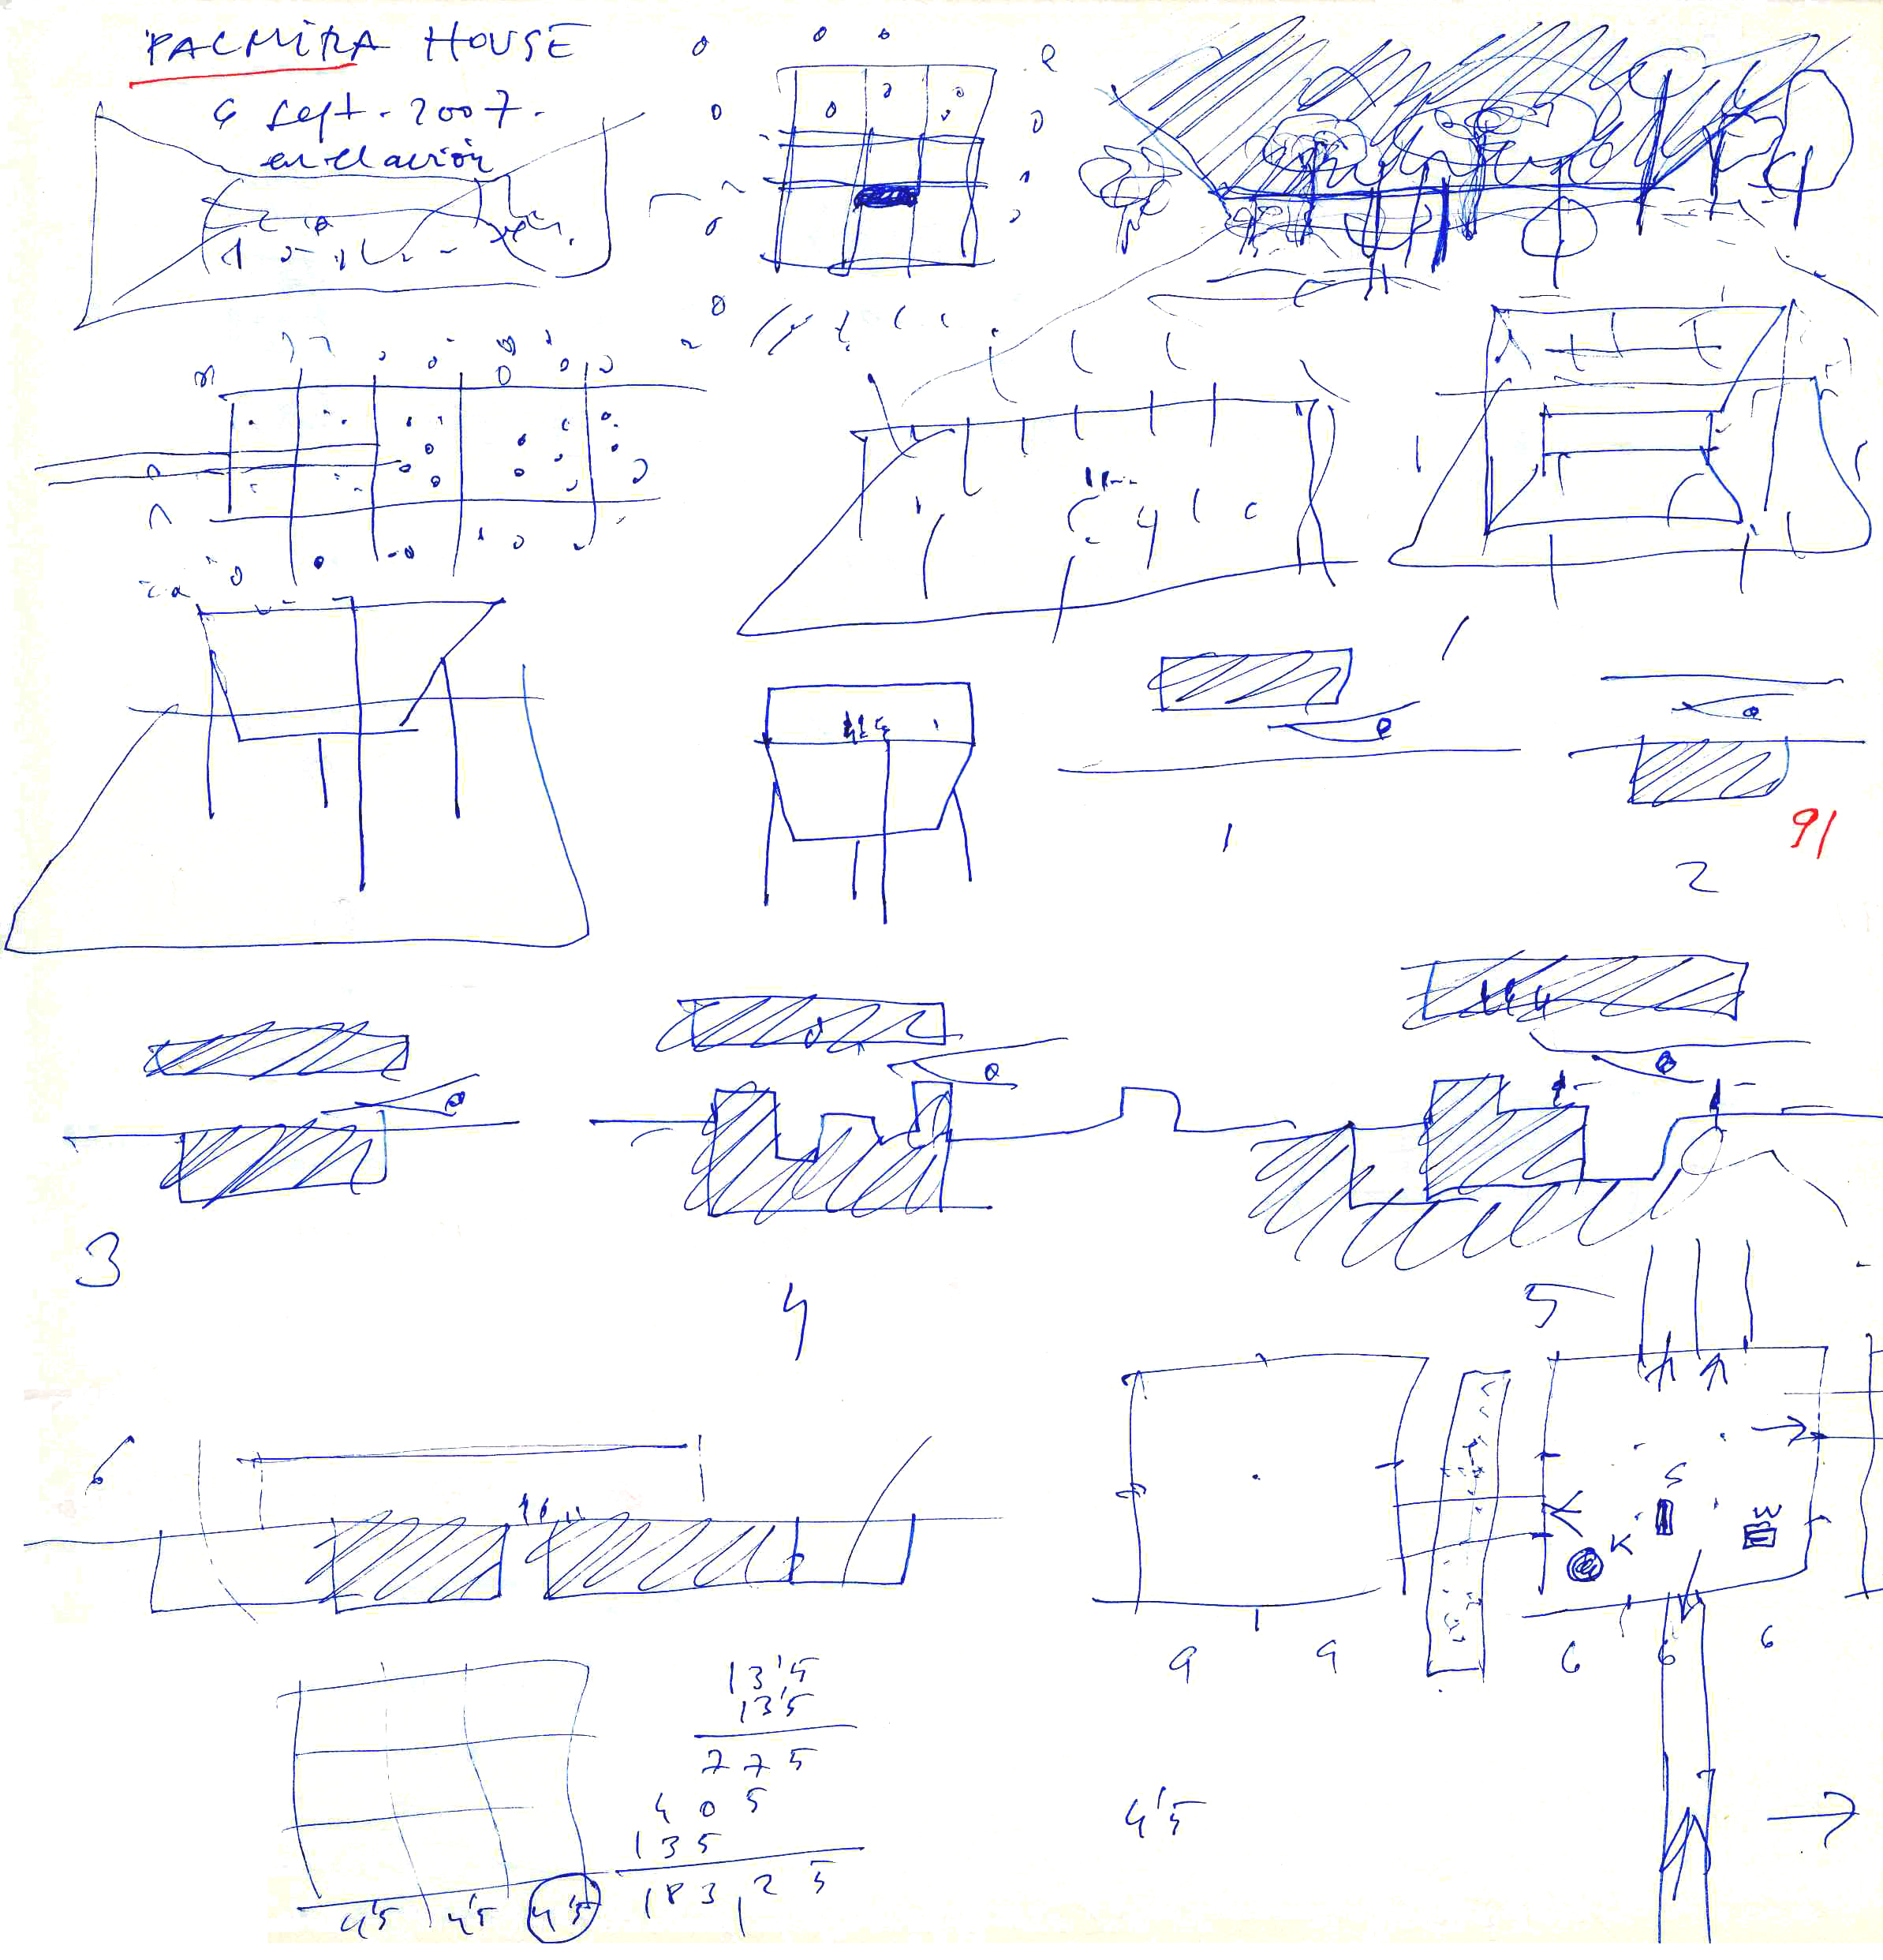 PALMIRA HOUSE
6 Sept. 2007.
en el avión
1
91
2
3
4
5
6
S
K
W
9 9
6 6 6
13'5
13'5
7 7 5
4 0 5
1 3 5
1 8 3, 2 5
4'5
4'5 4'5 4'5